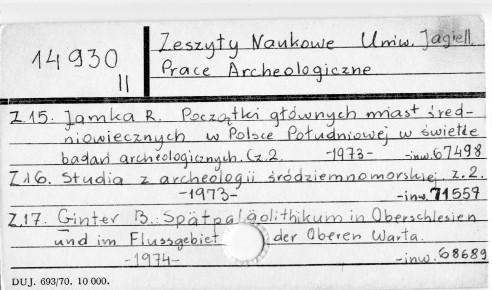 14930
II
Zeszyty Naukowe Uniw. Jagiell.
Prace Archeologiczne
Z.15. Jamka R. Początki głównych miast śred-
niowiecznych w Polsce Południowej w świetle
badań archeologicznych. Cz.2. -1973- -inw.67498
Z.16. Studia z archeologii śródziemnomorskiej. z.2.
-1973- -inw.71557
Z.17. Ginter B.: Spätpaläolithikum in Oberschlesien
und im Flussgebiet der Oberen Warta.
-1974- -inw.68689
DUJ. 693/70. 10 000.